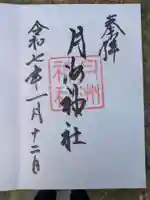 奉拝
月洲神社
令和七年一月十二日